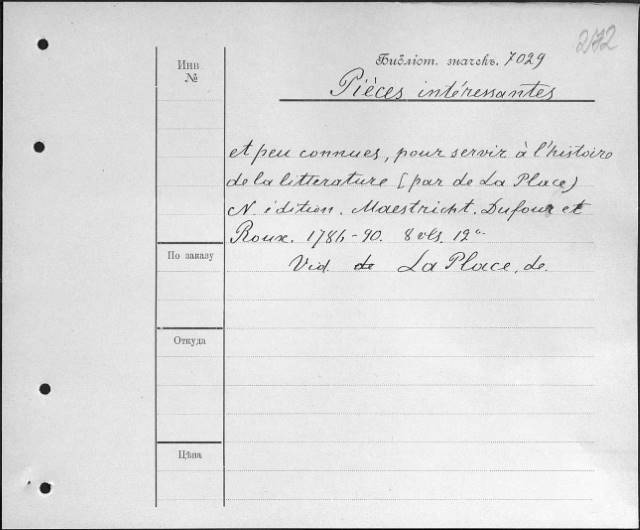 272
Инв
№
Библіот. значекъ. 7029
Pièces intéressantes
et peu connues, pour servir à l'histoire
de la litterature [par de La Place)
N. édition. Maestricht. Dufour et
Roux. 1786-90. 8 vls. 12°
Vid. de La Place, de.
По заказу
Откуда
Цѣна